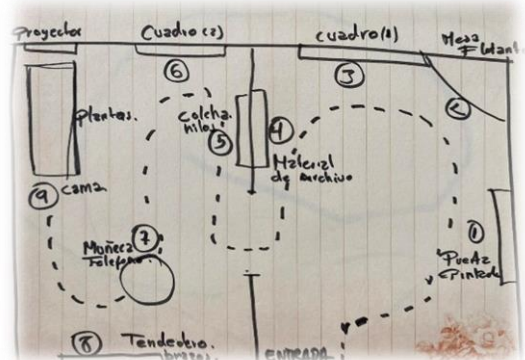 Proyector
Cuadro (2)
cuadro (1)
Mesa
Flotant
6
3
2
Plantas.
Colcha
nilos
5
4
Material
de archivo
9
cama
1
7
Muñeca
Telefono
Puerta
Pintada
8
Tendedero.
brazos.
ENTRADA